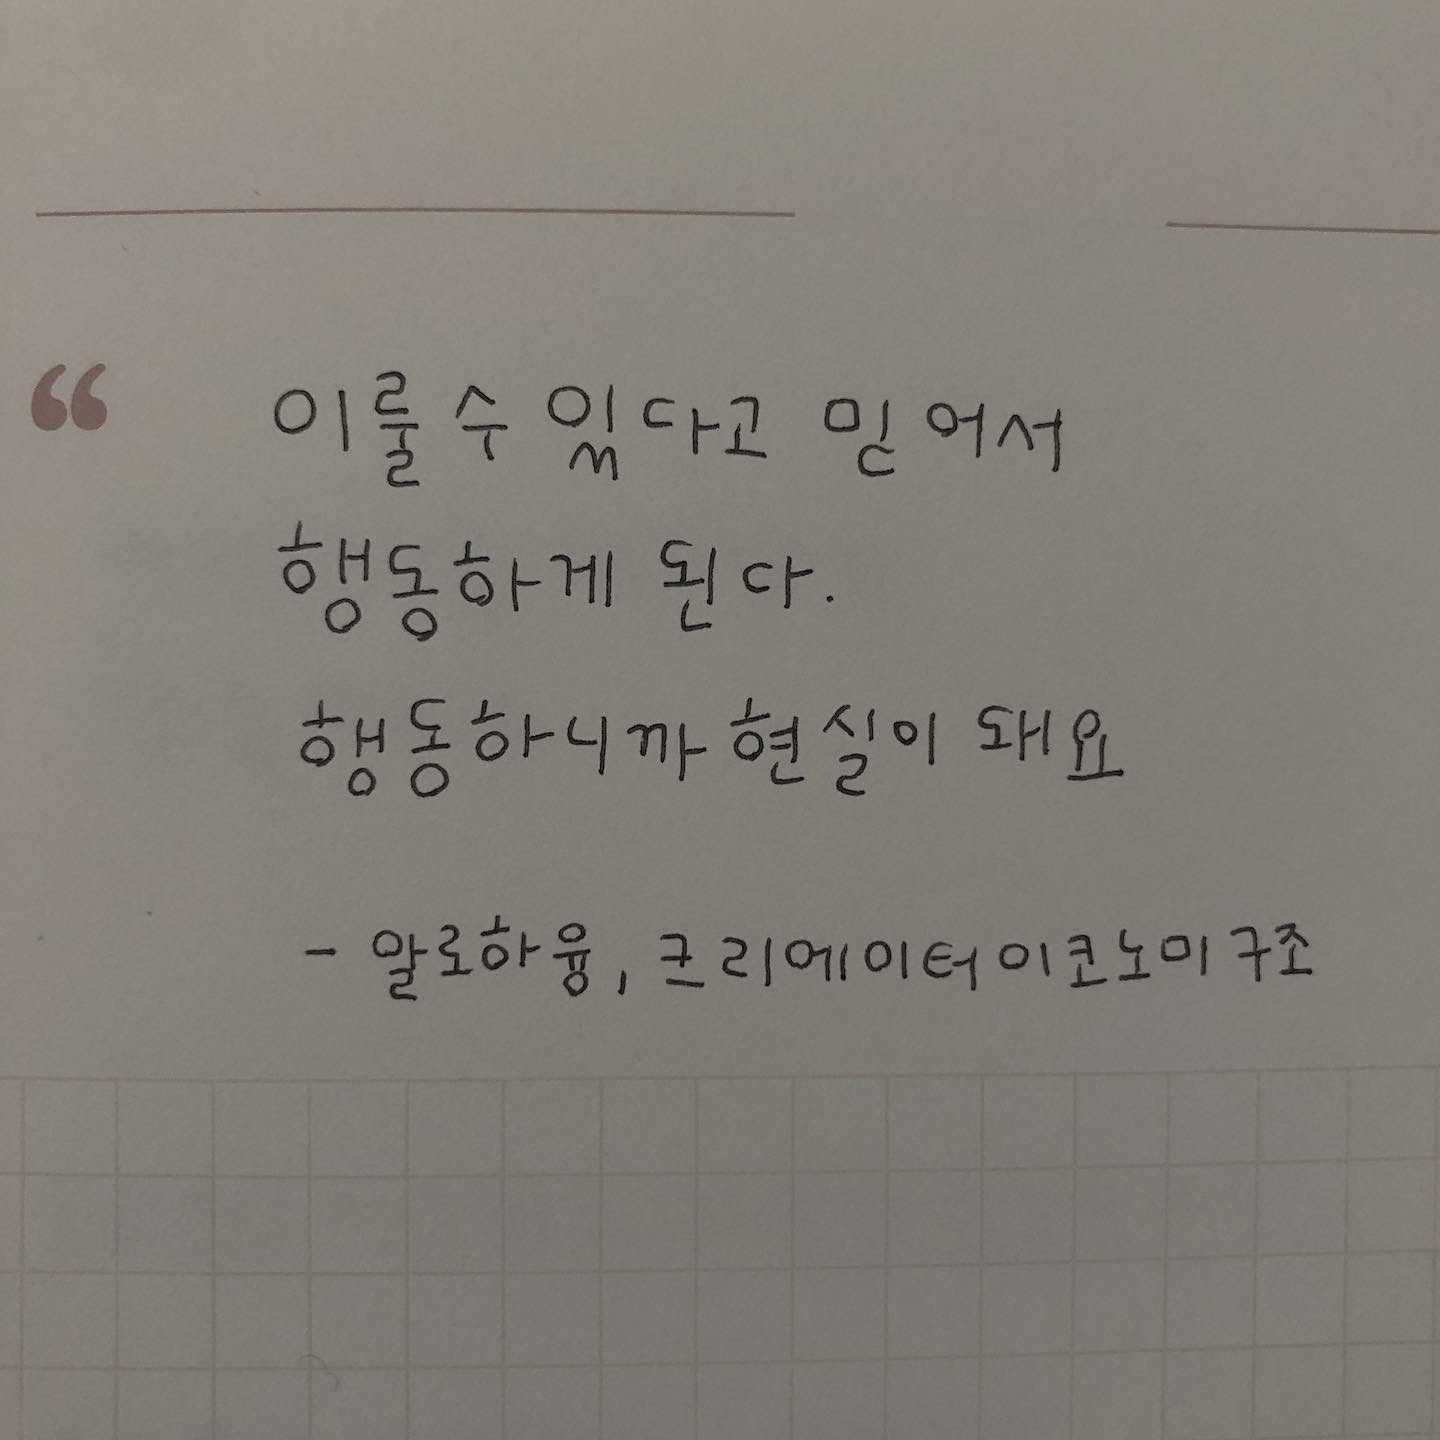 “ 이룰 수 있다고 믿어서
행동하게 된다.
행동하니까 현실이 돼요
- 알로하융, 크리에이터 이코노미 구조